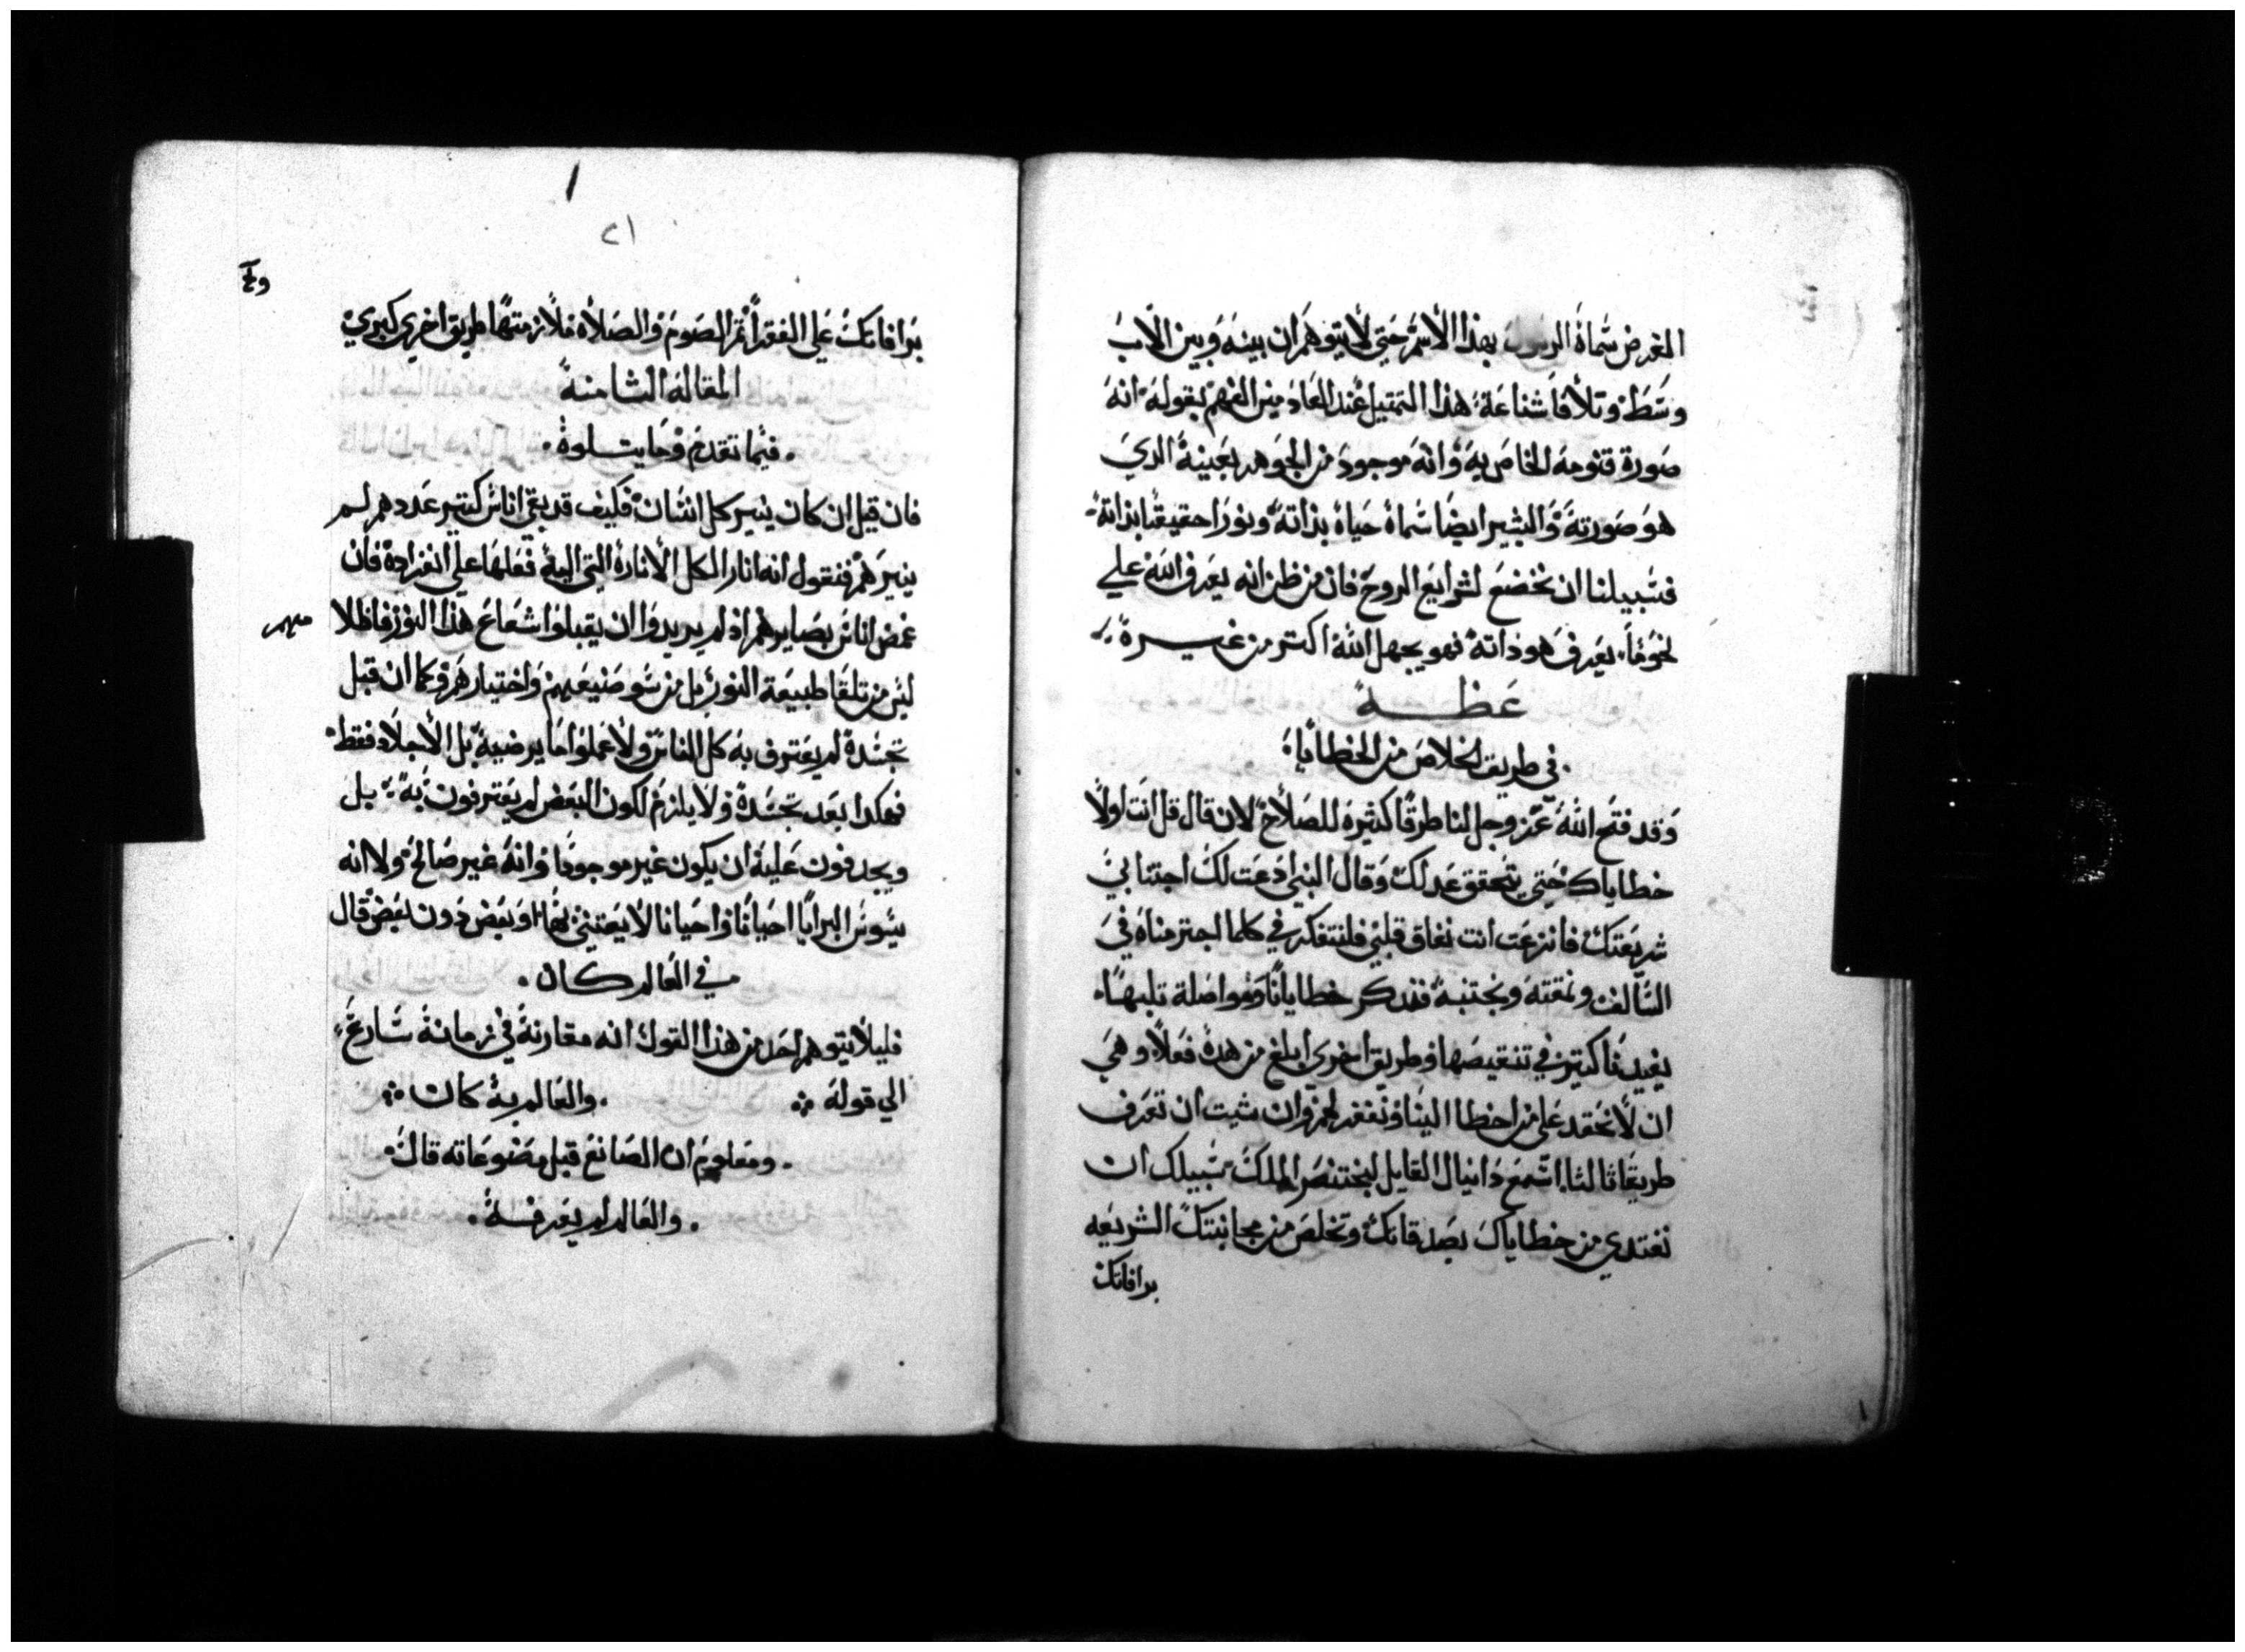 المغرض سماه الرسول بهذا الأسم حتي لا يتوهم ان بينه وبين الاب
وسط وتلافا شناعة هذا التمتيل عند العادمين الفهم بقوله انه
صورة قنومه الخاصيه وانه موجود من الجوهر بعينية الدي
هو صورته والبشير ايضا سماه حياه بداته ونورا حقيقيا بداته
فسبيلنا ان نخضع لشرايع الروح فان من ظن انه يعرف الله علي
نحو ما يعرف هو داته فهو يجهل الله اكتر من غيره
عظه
في طريق الخلاص من الخطايا
وقد فتح الله عز وجل لنا طرقا كثيره للصلاح لان قال قل انت اولا
خطاياك حتي يتحقق عدلك وقال النبي ادعت لك اجتنابي
شريعتك فانزعت انت نفاق قلبي فلنتفكر في كلما اجترمناه في
السالف ونمقته ونجتنبه فتدكر خطايانا ومواصلة تلبها
يفيدنا كتير في تنقيصها وطريق اخري ابلغ من هده فعلا وهي
ان لا نحقد علي من اخطا الينا ونغفر لهم وان شيت ان تعرف
طريقا ثالثا اسمع دانيال القايل لبختنصر الملك سبيلك ان
تفتدي من خطاياك بصدقاتك وتخلص من مجانبتك الشريعه
برافاتك
٢١
برافاتك علي الفقرا ثم الصوم والصلاه فلازمتها طريق اخري كبري
المقالة الثامنة
فيما تقدم وما يتلوه
فان قيل ان كان ينير كل انسان فكيف قد بقي اناس كتير عددهم لم
ينيرهم فنقول انه انار الكل الأنارة التي اليه فعلها علي انفراده فان
غمض اناس بصايرهم اد لم يريدوا ان يقبلوا شعاع هذا النور فاظلا
ليس من تلقا طبيعة النور بل من سو صنيعهم واختيارهم وكما ان قبل
تجسده لم يعترف به كل الناس ولا عملوا ما يرضيه بل الأجلاد فقط
فهكدا بعد تجسده ولا يلزم لكون البعض لم يعترفون به بل
ويجدفون عليه ان يكون غير موجودا وانه غير صالح ولا انه
يسوس البرايا احيانا واحيانا لا يعتني بها او بعض دون بعض قال
في العالم كان
فليلا يتوهم احد من هذا القول انه مقارنة في زمانة سارع
الي قوله والعالم به كان
ومعلوم ان الصانع قبل مصنوعاته قال
والعالم لم يعرفه